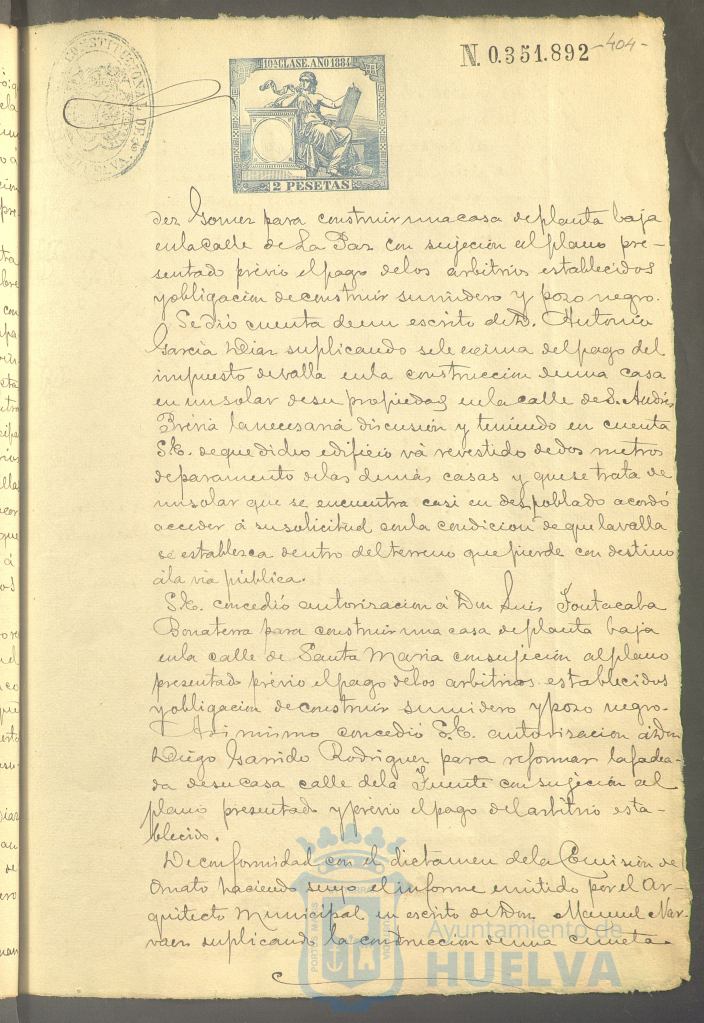 N. 0.351.892
-404-
CONSTITUCIONAL DE
10ª CLASE. AÑO 1884
2 PESETAS
dez Gomez para construir una casa de planta baja
en la calle de La Paz con sujecion al plano pre-
sentado prévio el pago de los arbitrios establecidos
y obligacion de construir sumidero y pozo negro.
Se dió cuenta de un escrito de D. Antonio
Garcia Diaz suplicando se le exima del pago del
impuesto de valla en la construccion de una casa
en un solar de su propiedad en la calle de S. Andrés
Prévia la necesaria discusion y teniendo en cuenta
S.E. de que dicho edificio vá revestido de dos metros
de paramento de las demás casas y que se trata de
un solar que se encuentra casi en despoblado acordó
acceder á su solicitud con la condicion de que la valla
se establezca dentro del terreno que pierde con destino
á la via pública.
S.E. concedió autorizacion á Don Luis Fontacaba
Bonaterra para construir una casa de planta baja
en la calle de Santa Maria con sujecion al plano
presentado prévio el pago de los arbitrios establecidos
y obligacion de construir sumidero y pozo negro.
Asi mismo concedió S.E. autorizacion á Don
Diego Garrido Rodriguez para reformar la facha-
da de su casa calle de la Fuente con sujecion al
plano presentado y prévio el pago del arbitrio esta-
blecido.
De conformidad con el dictamen de la Comision de
Ornato haciendo suyo el informe emitido por el Ar-
quitecto Municipal en escrito de Don Manuel Nar-
vaez suplicando la construccion de una cuneta
Ayuntamiento de
HUELVA